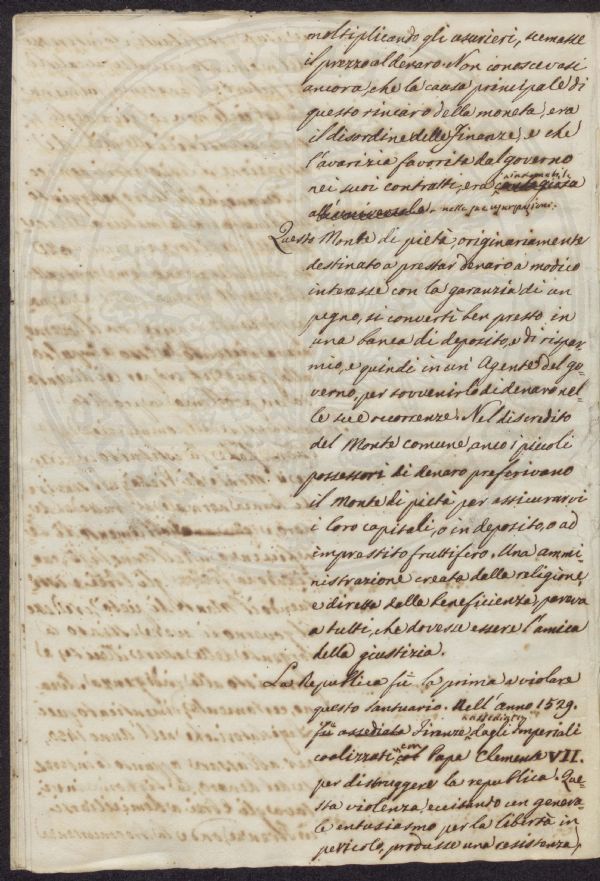 moltiplicando gli usurieri, scemasse
il prezzo al denaro. Non conoscevasi
ancora, che la causa principale di
questo rincaro della moneta, era
il disordine delle Finanze, e che
l'avarizia favorita dal governo
nei suoi contratti, era contagiosa
all'universale nelle sue usurpazioni.
Questo Monte di pietà, originariamente
destinato a prestar denaro a modico
interesse con la garanzia di un
pegno, si convertì ben presto in
una banca di deposito, e di rispar=
mio, e quindi in un' Agente del go=
verno, per sovvenirlo di denaro nel=
le sue occorrenze. Nel discredito
del Monte comune, anco i piccoli
possessori di denaro preferivano
il Monte di pietà per assicurarvi
i loro capitali, o in deposito, o ad
imprestito fruttifero. Una ammi=
nistrazione creata dalla religione,
e diretta dalla beneficienza, pareva
a tutti, che dovesse essere l'amica
della giustizia.
La Republica fù la prima a violare
questo santuario. Nell'anno 1529.
fù assediata Firenze dagli Imperiali
coalizzati col Papa Clemente VII.
per distruggere la republica. Que=
sta violenza, eccitando un genera=
le entusiasmo per la libertà in
pericolo, produsse una resistenza,